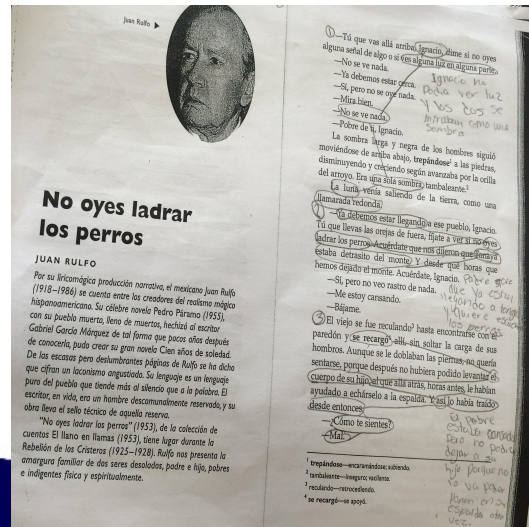 Juan Rulfo
No oyes ladrar
los perros
JUAN RULFO
Por su liricomágica producción narrativa, el mexicano Juan Rulfo
(1918–1986) se cuenta entre los creadores del realismo mágico
hispanoamericano. Su célebre novela Pedro Páramo (1955),
con su pueblo muerto, lleno de muertos, hechizó al escritor
Gabriel García Márquez de tal forma que pocos años después
de conocerla, pudo crear su gran novela Cien años de soledad.
De las escasas pero deslumbrantes páginas de Rulfo se ha dicho
que cifran un laconismo angustiado. Su lenguaje es un lenguaje
puro del pueblo que tiende más al silencio que a la palabra. El
escritor, en vida, era un hombre descomunalmente reservado, y su
obra lleva el sello técnico de aquella reserva.
"No oyes ladrar los perros" (1953), de la colección de
cuentos El llano en llamas (1953), tiene lugar durante la
Rebelión de los Cristeros (1925–1928). Rulfo nos presenta la
amargura familiar de dos seres desolados, padre e hijo, pobres
e indigentes física y espiritualmente.
1 —Tú que vas allá arriba, Ignacio, dime si no oyes
alguna señal de algo o si ves alguna luz en alguna parte.
—No se ve nada.
—Ya debemos estar cerca.
—Sí, pero no se oye nada.
—Mira bien.
—No se ve nada.
—Pobre de ti, Ignacio.
Ignacio no
podia ver luz
y los dos se
miraban como una
sombra
La sombra larga y negra de los hombres siguió
moviéndose de arriba abajo, trepándose¹ a las piedras,
disminuyendo y creciendo según avanzaba por la orilla
del arroyo. Era una sola sombra, tambaleante.²
La luna venía saliendo de la tierra, como una
llamarada redonda.
—Ya debemos estar llegando a ese pueblo, Ignacio.
Tú que llevas las orejas de fuera, fíjate a ver si no oyes
ladrar los perros. Acuérdate que nos dijeron que Tonaya
estaba detrasito del monte. Y desde qué horas que
hemos dejado el monte. Acuérdate, Ignacio.
—Sí, pero no veo rastro de nada.
—Me estoy cansando.
—Bájame.
que ya
los perros
3 El viejo se fue reculando³ hasta encontrarse con el
paredón y se recargó⁴ allí, sin soltar la carga de sus
hombros. Aunque se le doblaban las piernas, no quería
sentarse, porque después no hubiera podido levantar el
cuerpo de su hijo, al que allá atrás, horas antes, le habían
ayudado a echárselo a la espalda. Y así lo había traído
desde entonces.
—¿Cómo te sientes?
—Mal.
El pobre
estaba cansado
pero no podia
dejar a su
hijo porque no
lo va poder
poner en su
espalda otra
vez.
¹ trepándose—encaramándose; subiendo.
² tambaleante—inseguro; vacilante.
³ reculando—retrocediendo.
⁴ se recargó—se apoyó.